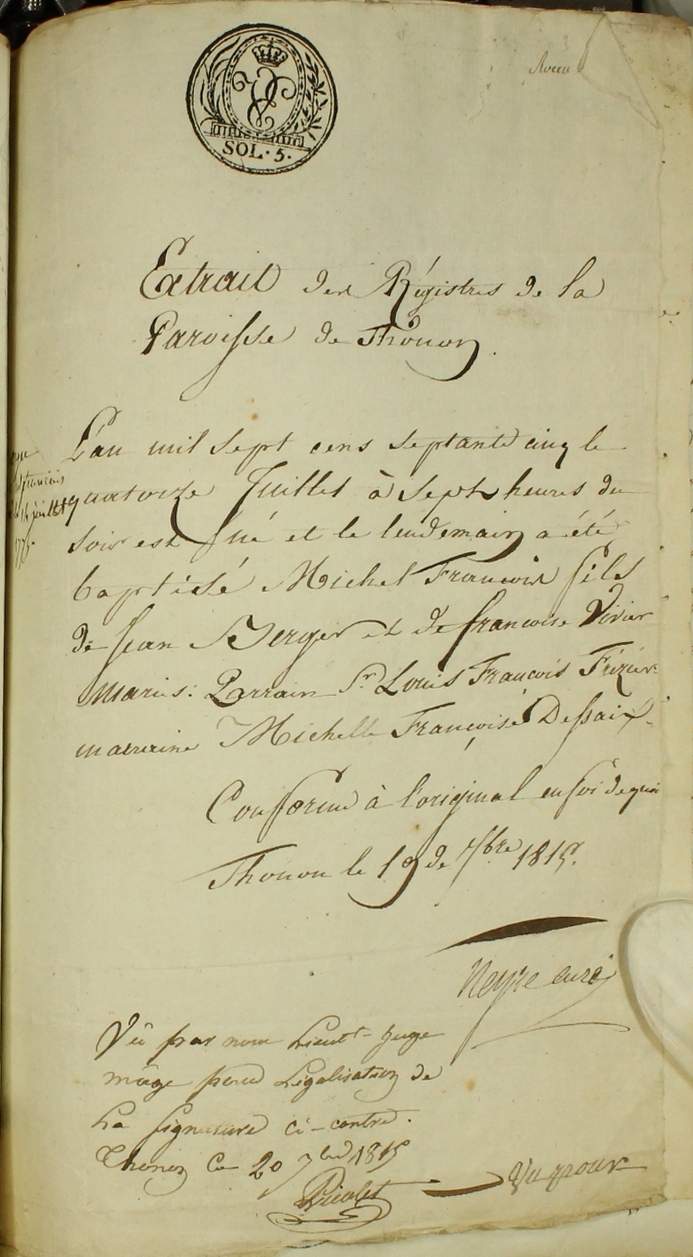 SOL. 5.
Extrait des Régistres de la
Paroisse de Thonon.
L'an mil sept cens septante cinq le
quatorze Juillet à sept heures du
soir est né et le lendemain a été
baptisé Michel François fils
de Jean Berger et de françoise Vivier
mariés: Parrain Sr Louis François Frézier
marraine Michelle Françoise Dessaix.
Conforme à l'original en foi de quoi
Thonon le 19 de 7bre 1815.
Neyre curé
Vû par nous Lieutt Juge
mâge pour Légalisation de
La signature ci-contre.
Thonon Ce 20 7bre 1815
Vu pour
14 juillet
1775.